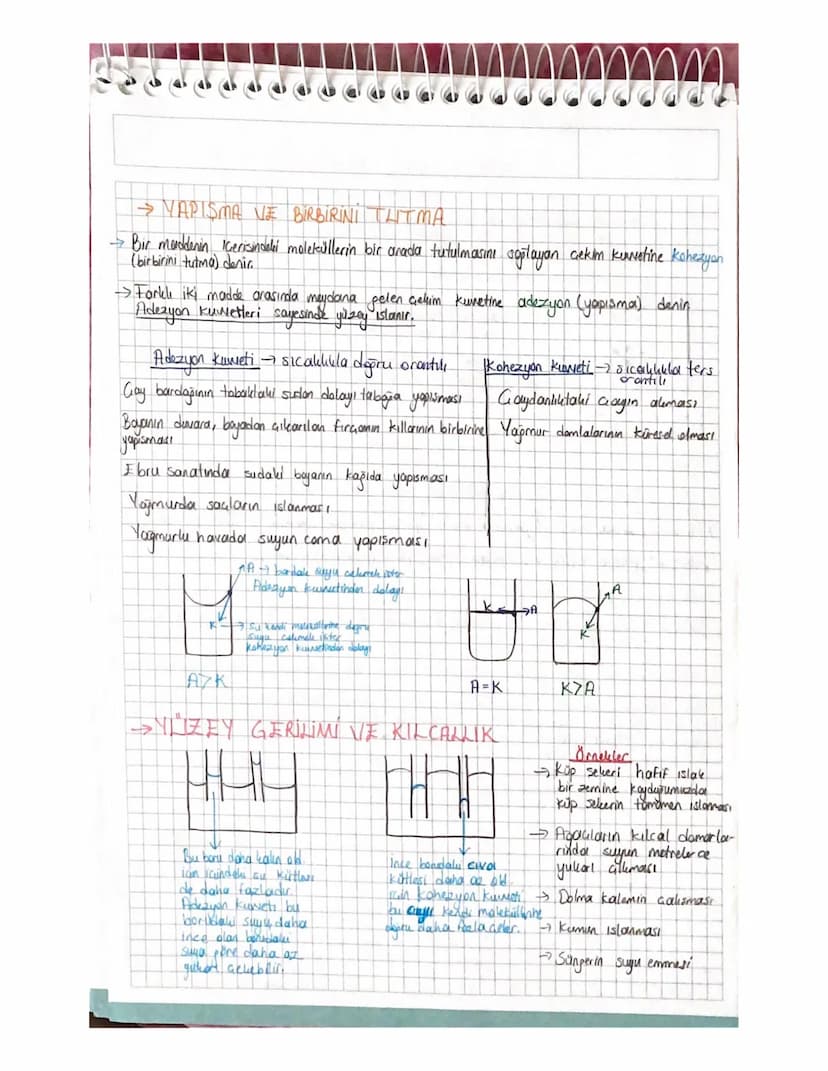 → YAPIŞMA VE BİRBİRİNİ TUTMA
→ Bir maddenin içerisindeki moleküllerin bir arada tutulmasını sağlayan çekim kuvvetine kohezyon
(birbirini tutma) denir.
→ Farklı iki madde arasında meydana gelen çekim kuvvetine adezyon (yapışma) denir.
Adezyon kuvvetleri sayesinde yüzey ıslanır.
Adezyon kuvveti → sıcaklıkla doğru orantılı
Çay bardağının tabaktaki sudan dolayı tabağa yapışması
Boyanın duvara, boyadan çıkarılan fırçanın kıllarının birbirine
yapışması
Ebru sanatında sudaki boyanın kağıda yapışması
Yağmurda saçların ıslanması
Yağmurlu havada suyun cama yapışması
Kohezyon kuvveti → sıcaklıkla ters
orantılı
Çaydanlıktaki çayın akması
Yağmur damlalarının küresel olması
A → bardak suyu çekmek ister
Adezyon kuvvetinden dolayı
K → su kendi moleküllerine doğru
suyu çekmek ister
kohezyon kuvvetinden dolayı
A>K
K A
A=K
A
K
K>A
→ YÜZEY GERİLİMİ VE KILCALLIK
Bu boru daha kalın old.
için içindeki su kütlesi
de daha fazladır.
Adezyon kuveti bu
borudaki suyu daha
ince olan borudaki
suya göre daha az
yukarı çekebilir.
İnce borudaki cıva
kütlesi daha az old.
için kohezyon kuvveti
bu kendi moleküllerine
doğru daha fazla çeker.
Örnekler
→ Küp şekeri hafif ıslak
bir zemine koyduğumuzda
küp şekerin tamamen ıslanması
→ Ağaçların kılcal damarla-
rında suyun metrelerce
yukarı çıkması
→ Dolma kalemin çalışması
→ Kumun ıslanması
→ Süngerin suyu emmesi